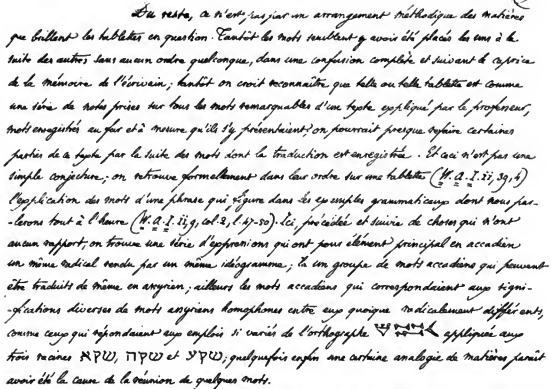 Du reste, ce n'est pas par un arrangement méthodique des matières
que brillent les tablettes en question. Tantôt les mots semblent y avoir été placés les uns à la
suite des autres sans aucun ordre quelconque, dans une confusion complète et suivant le caprice
de la mémoire de l'écrivain; tantôt on croit reconnaître que telle ou telle tablette est comme
une série de notes prises sur tous les mots remarquables d'un texte expliqué par le professeur,
mots enregistrés au fur et à mesure qu'ils s'y présentaient; on pourrait presque refaire certaines
parties de ce texte par la suite des mots dont la traduction est enregistrée. Et ceci n'est pas une
simple conjecture; on retrouve formellement dans leur ordre sur une tablette (W. A. I. II, 39, 4)
l'explication des mots d'une phrase qui figure dans les exemples grammaticaux dont nous par-
-lerons tout à l'heure (W. A. I. II, 9, col. 2, l. 47-50). Ici, précédée et suivie de choses qui n'ont
aucun rapport, on trouve une série d'expressions qui ont pour élément principal en accadien
un même radical rendu par un même idéogramme; là un groupe de mots accadiens qui peuvent
être traduits de même en assyrien; ailleurs les mots accadiens qui correspondaient aux signi-
-fications diverses de mots assyriens homophones entre eux quoique radicalement différents,
comme ceux qui répondaient aux emplois si variés de l'orthographe appliquée aux
trois racines שקא, שקה et שקע; quelquefois enfin une certaine analogie de matières paraît
avoir été la cause de la réunion de quelques mots.